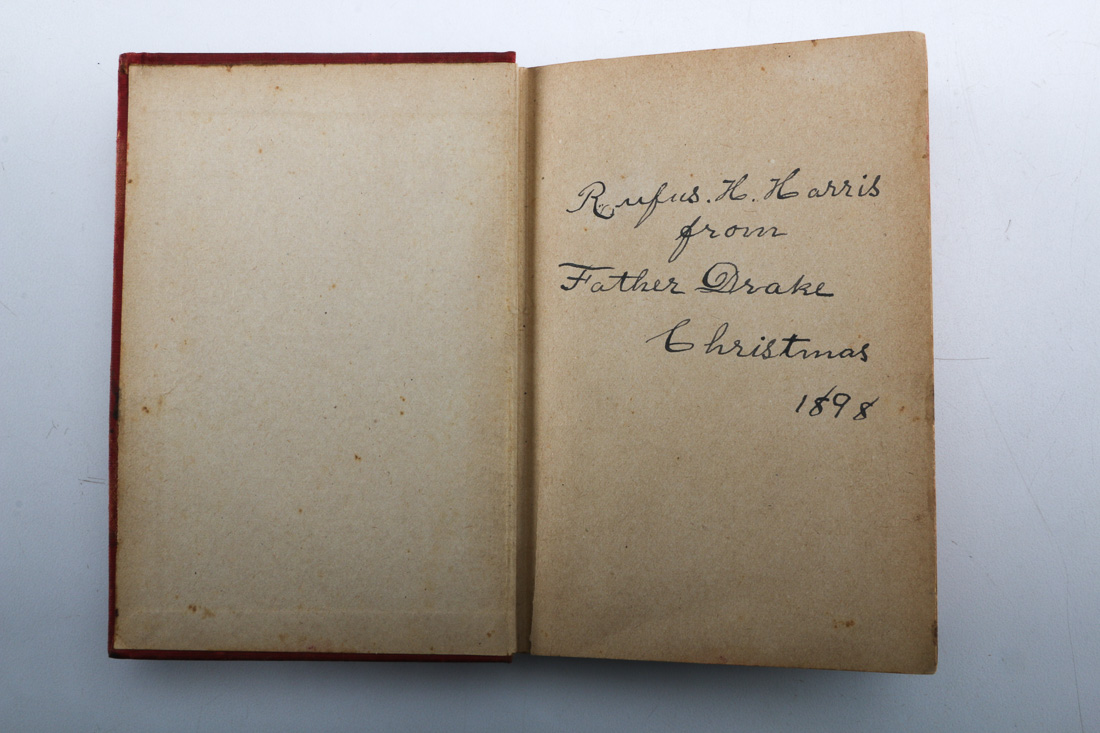 Rufus. H. Harris
from
Father Drake
Christmas
1898